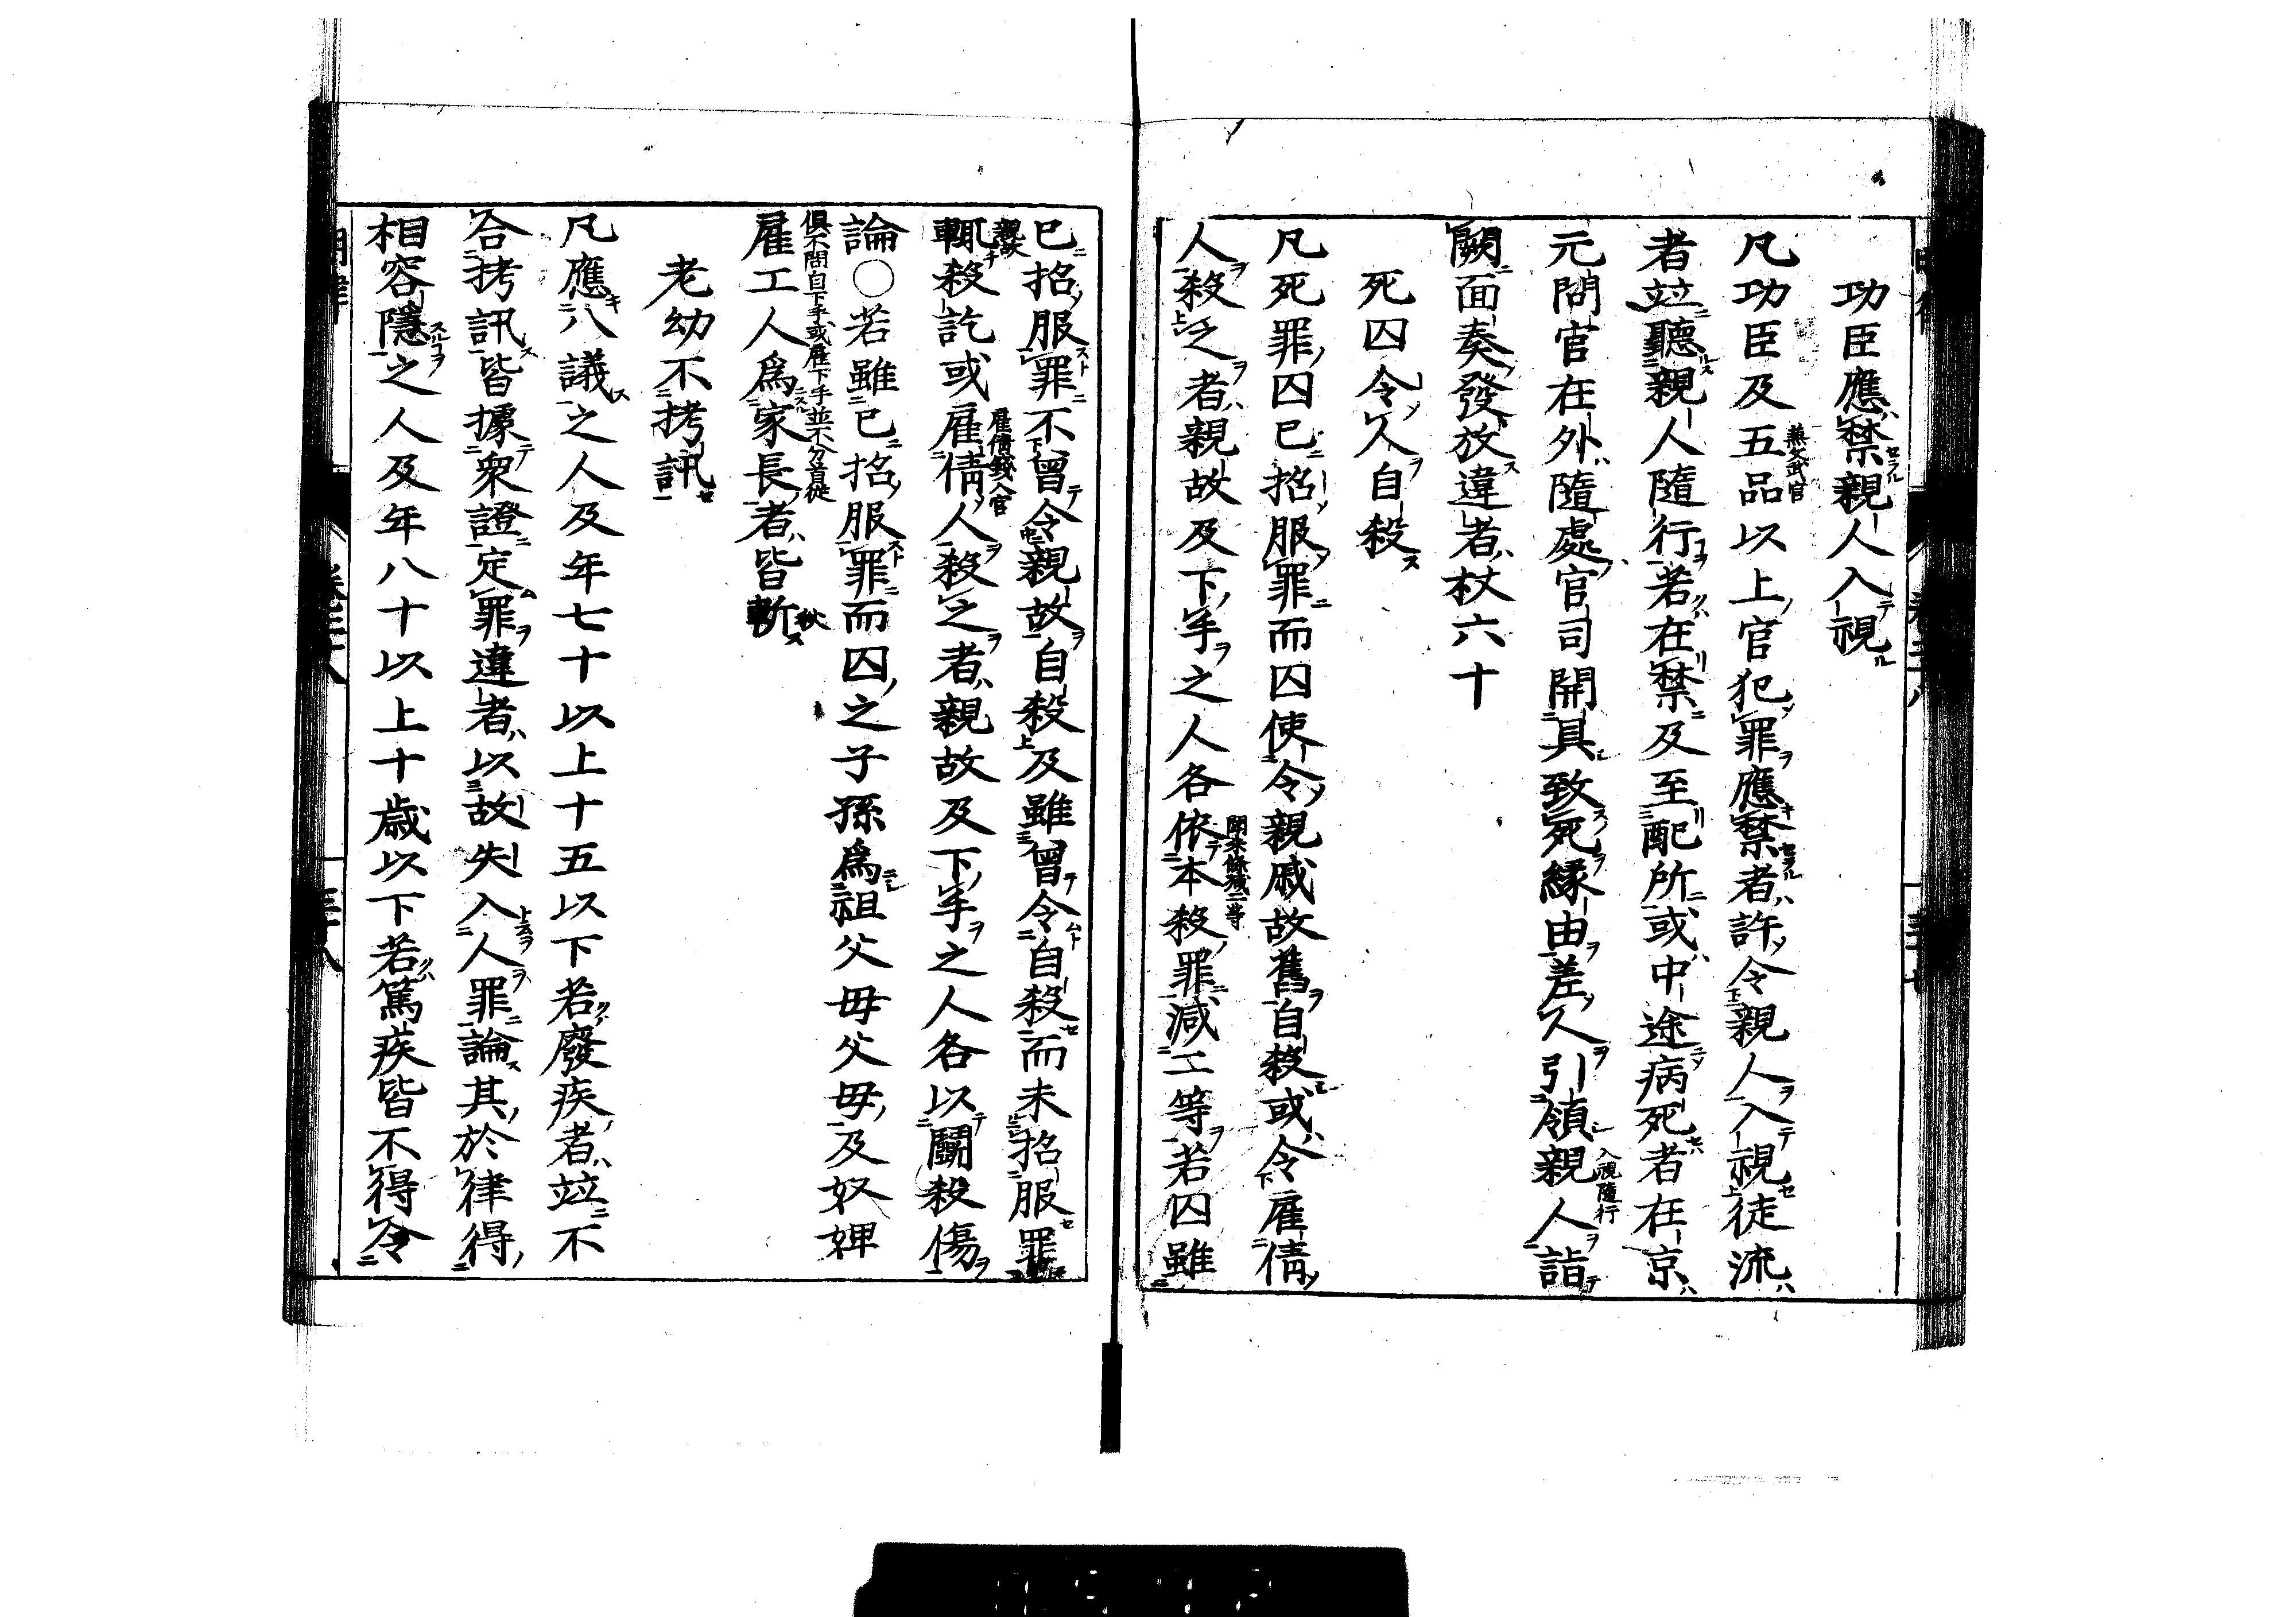 功臣應禁親人入視
凡功臣及五品以上官犯罪應禁者許令親人入視徒流
兼文武官
者竝聽親人隨行若在禁及至配所或中途病死者在京
元問官在外隨處官司開具致死緣由差人引領親人詣
入視隨行
闕面奏發放違者杖六十
死囚令人自殺
凡死罪囚已招服罪而囚使令親戚故舊自殺或令雇倩
人殺之者親故及下手之人各依本殺罪減二等若囚雖
鬪杀條減二等
已招服罪不曾令親故自殺及雖曾令自殺而未招服罪
親故
輒殺訖或雇倩人殺之者親故及下手之人各以鬪殺傷
雇倩錢入官
論○若雖已招服罪而囚之子孫爲祖父母父母及奴婢
俱不問自下手或雇下手並不分首從
雇工人爲家長者皆斬
秋
老幼不拷訊
凡應八議之人及年七十以上十五以下若廢疾者竝不
合拷訊皆據衆證定罪違者以故失入人罪論其於律得
相容隱之人及年八十以上十歳以下若篤疾皆不得令